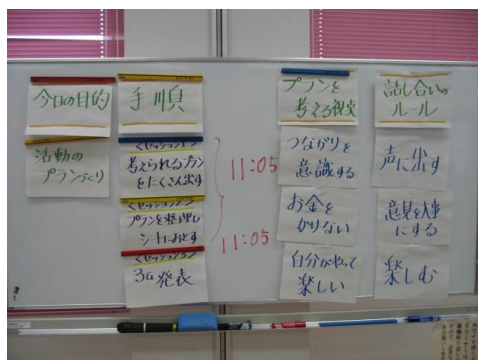 今日の目的
活動の
プランづくり
手順
<セッション1>
考えられるプラン
をたくさん出す
<セッション2>
プランを整理し
シートにおとす
<セッション3>
3G 発表
11:05
11:05
プランを
考える視点
つながりを
意識する
お金を
かけない
自分がやって
楽しい
話し合いの
ルール
声に出す
意見を大事
にする
楽しむ